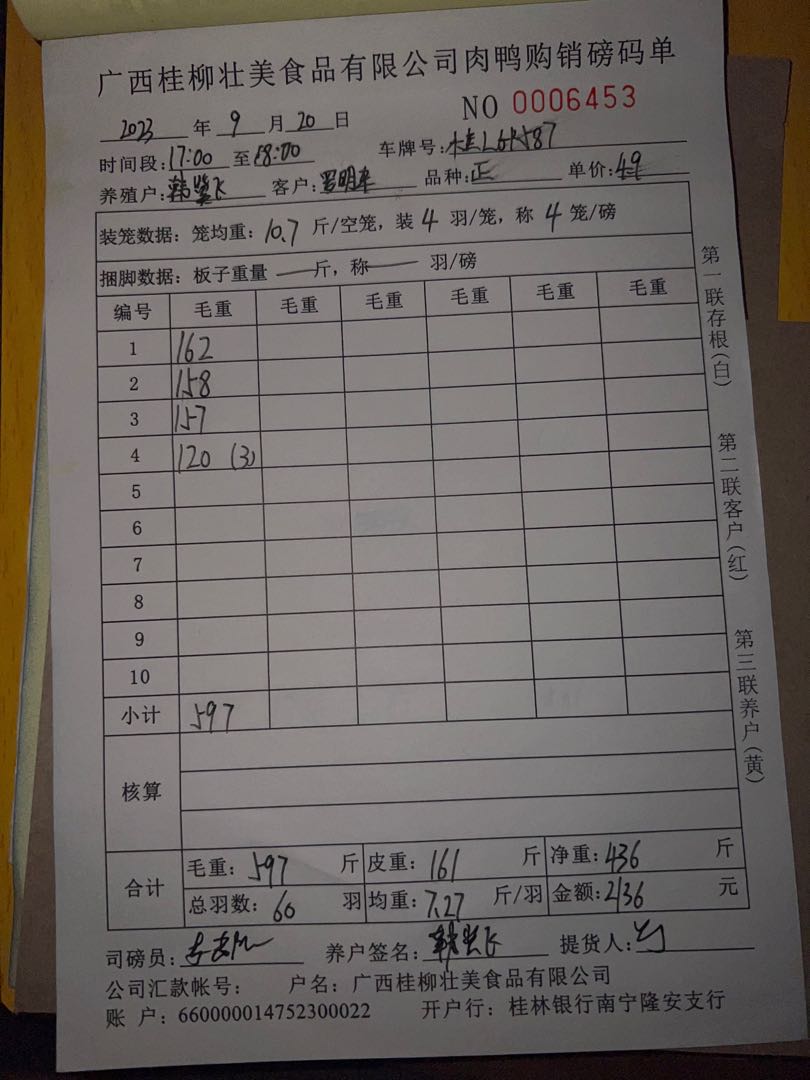 广西桂柳壮美食品有限公司肉鸭购销磅码单
NO 0006453
2023 年 9 月 20 日
时间段:17:00 至18:00 车牌号:桂L6K587
养殖户: 飞 客户:罗明 品种:正 单价:4.9
装笼数据: 笼均重: 10.7 斤/空笼, 装 4 羽/笼, 称 4 笼/磅
捆脚数据: 板子重量 — 斤, 称 — 羽/磅
编号 毛重 毛重 毛重 毛重 毛重 毛重
1 162
2 158
3 157
4 120 (3)
5
6
7
8
9
10
小计 597
核算
合计 毛重: 597 斤 皮重: 161 斤 净重: 436 斤
总羽数: 60 羽 均重: 7.27 斤/羽 金额: 2136 元
司磅员: 养户签名: 飞 提货人:
公司汇款帐号: 户名: 广西桂柳壮美食品有限公司
账 户: 660000014752300022 开户行: 桂林银行南宁隆安支行
第一联存根(白)
第二联客户(红)
第三联养户(黄)